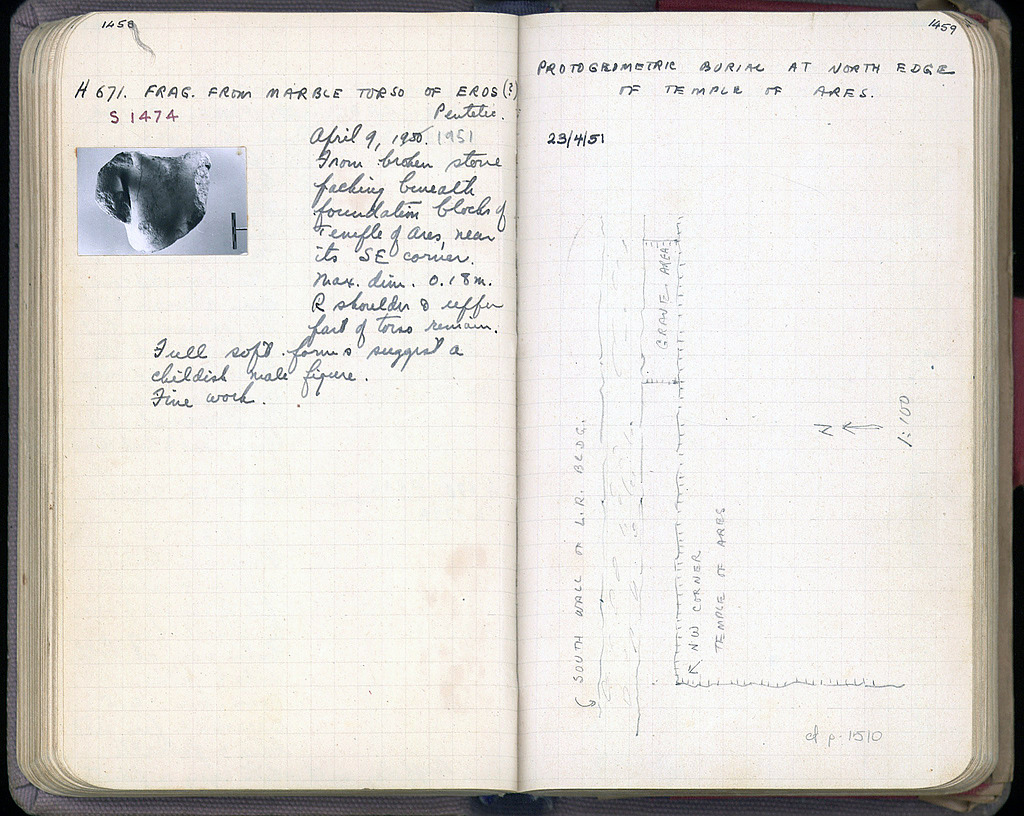 1458
H 671. FRAG. FROM MARBLE TORSO OF EROS (?)
S 1474
Pentelic.
April 9, 1950. 1951
From broken stone
packing beneath
foundation blocks of
Temple of Ares, near
its SE corner.
Max. dim. 0.18 m.
R shoulder & upper
part of torso remain.
Full soft forms suggest a
childish male figure.
Fine work.
1459
PROTOGEOMETRIC BURIAL AT NORTH EDGE
OF TEMPLE OF ARES.
23/4/51
GRAVE AREA
SOUTH WALL OF L.R. BLDG.
NW CORNER
TEMPLE OF ARES
N
1:100
cf p. 1510